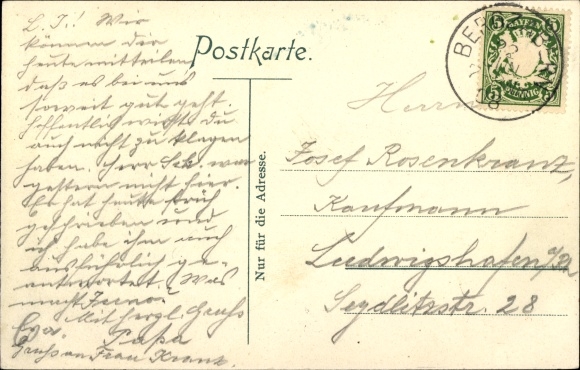 L. J.! Wir
können dir
heute mitteilen
daß es bei uns
soweit gut geht.
Hoffentlich wirst du
auch nicht zu klagen
haben. Herr Sch. war
gestern nicht hier.
Er hat heute früh
geschrieben und
ich habe ihm auch
ausführlich ge-
antwortet. Was
macht
Mit herzl. Gruß
Papa
Gruß an Frau Kranz.
Postkarte.
Nur für die Adresse.
BAYERN
5 5
5 PFENNIG 5
BER
Herrn
Josef Rosenkranz,
Kaufmann
Ludwigshafen a/Rh
Seydlitzstr. 28